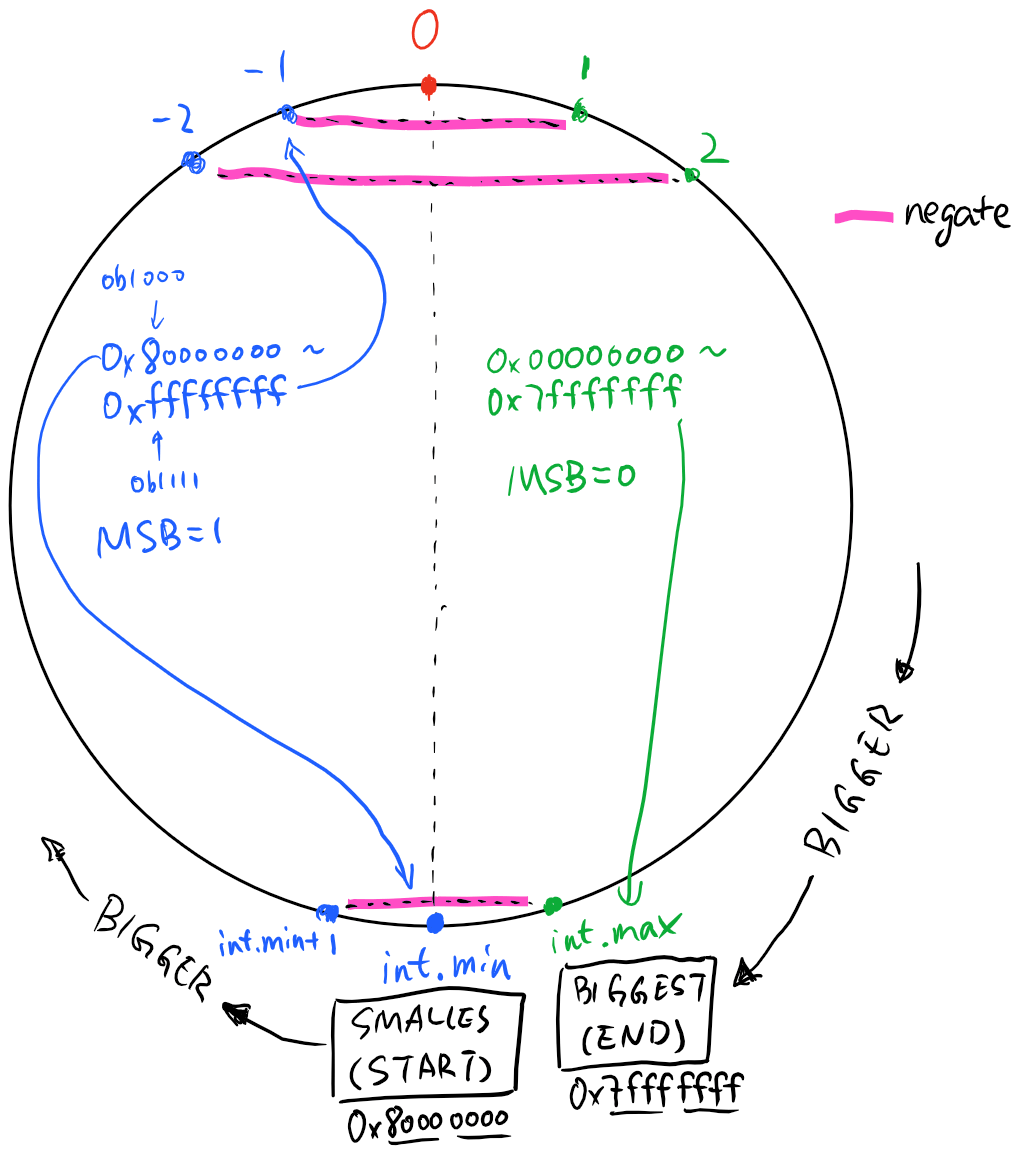 0
-1
1
-2
2
negate
0b1000
↓
0x80000000 ~
0xffffffff
↑
0b1111
MSB=1
0x00000000 ~
0x7fffffff
MSB=0
BIGGER
BIGGER
int.min+1
int.min
int.max
SMALLES
(START)
0x8000 0000
BIGGEST
(END)
0x7fff ffff